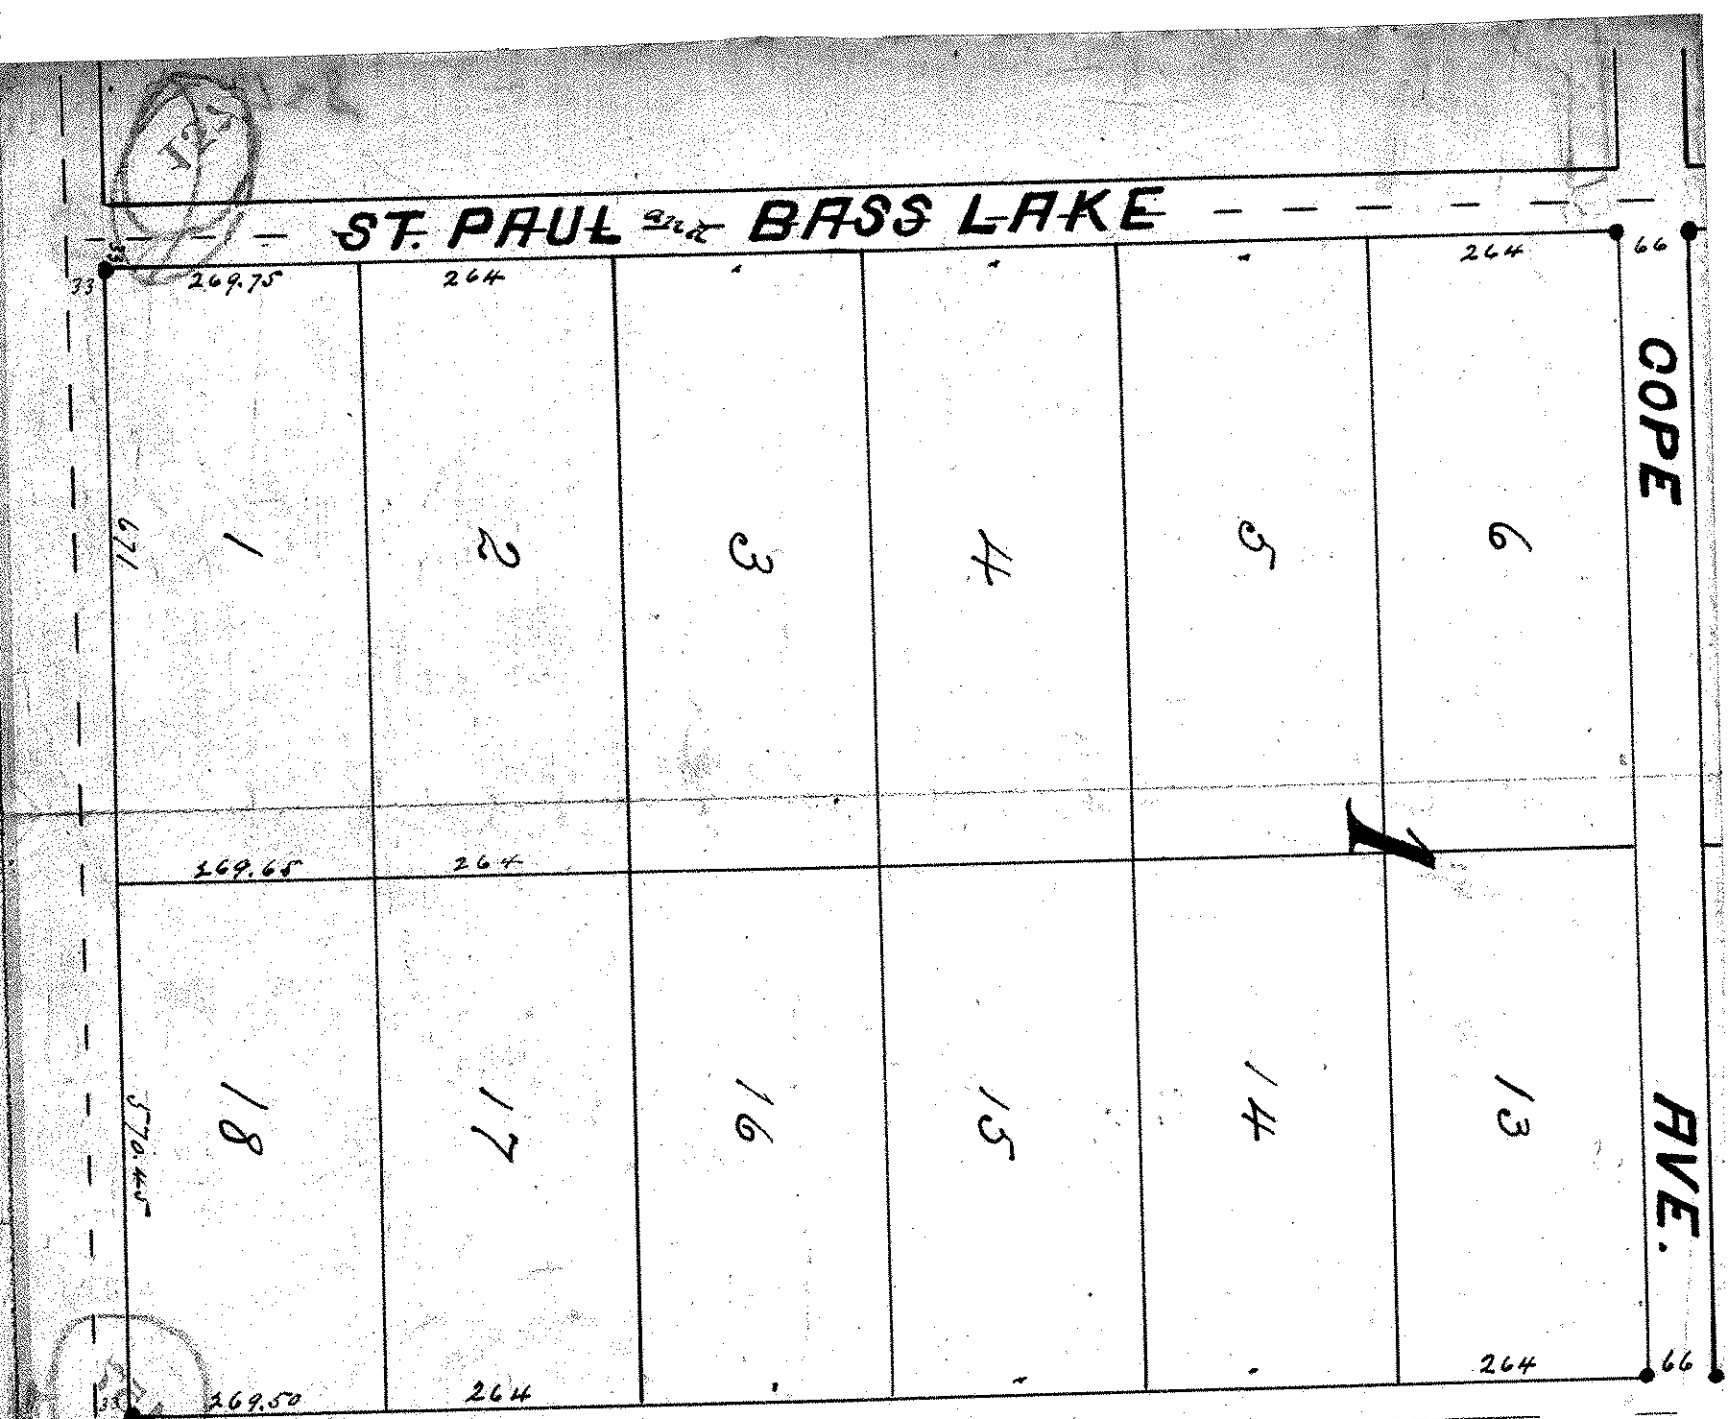 ST. PAUL and BASS LAKE
33
33
269.75
264
264
66
COPE
671
1
2
3
4
5
6
1
269.65
264
18
17
16
15
14
13
570.45
AVE.
33
269.50
264
264
66